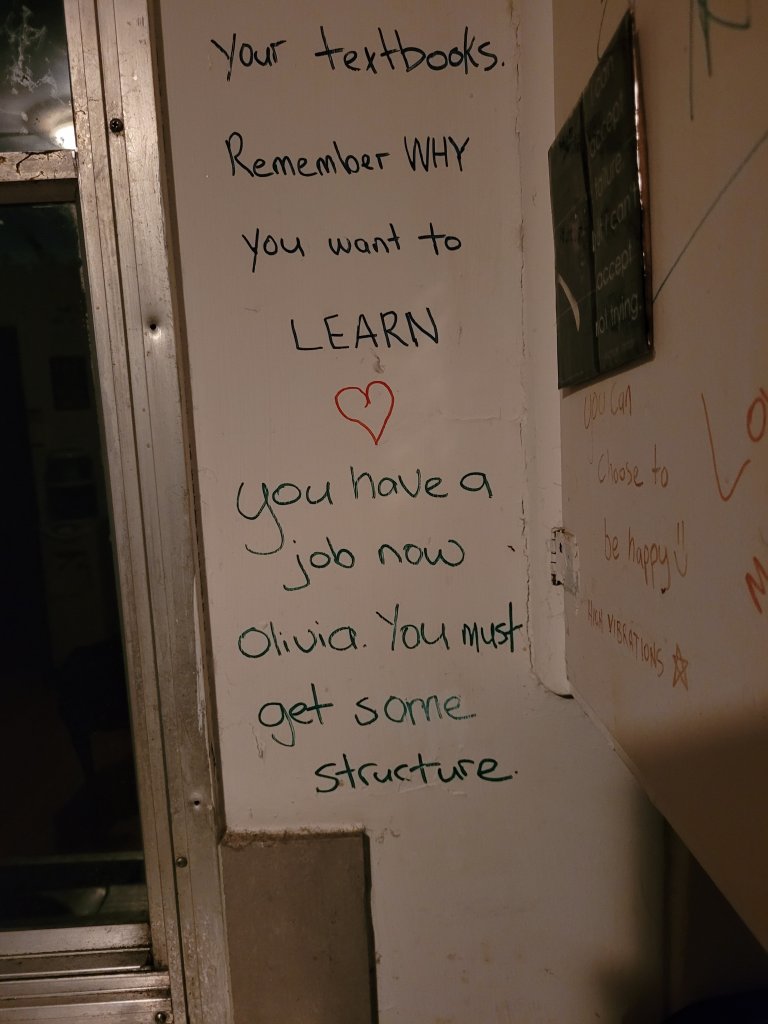 Your textbooks.
Remember WHY
you want to
LEARN
you have a
job now
Olivia. You must
get some
structure.
I can
accept
failure
but I can't
accept
not trying.
you can
Choose to
be happy
HIGH VIBRATIONS